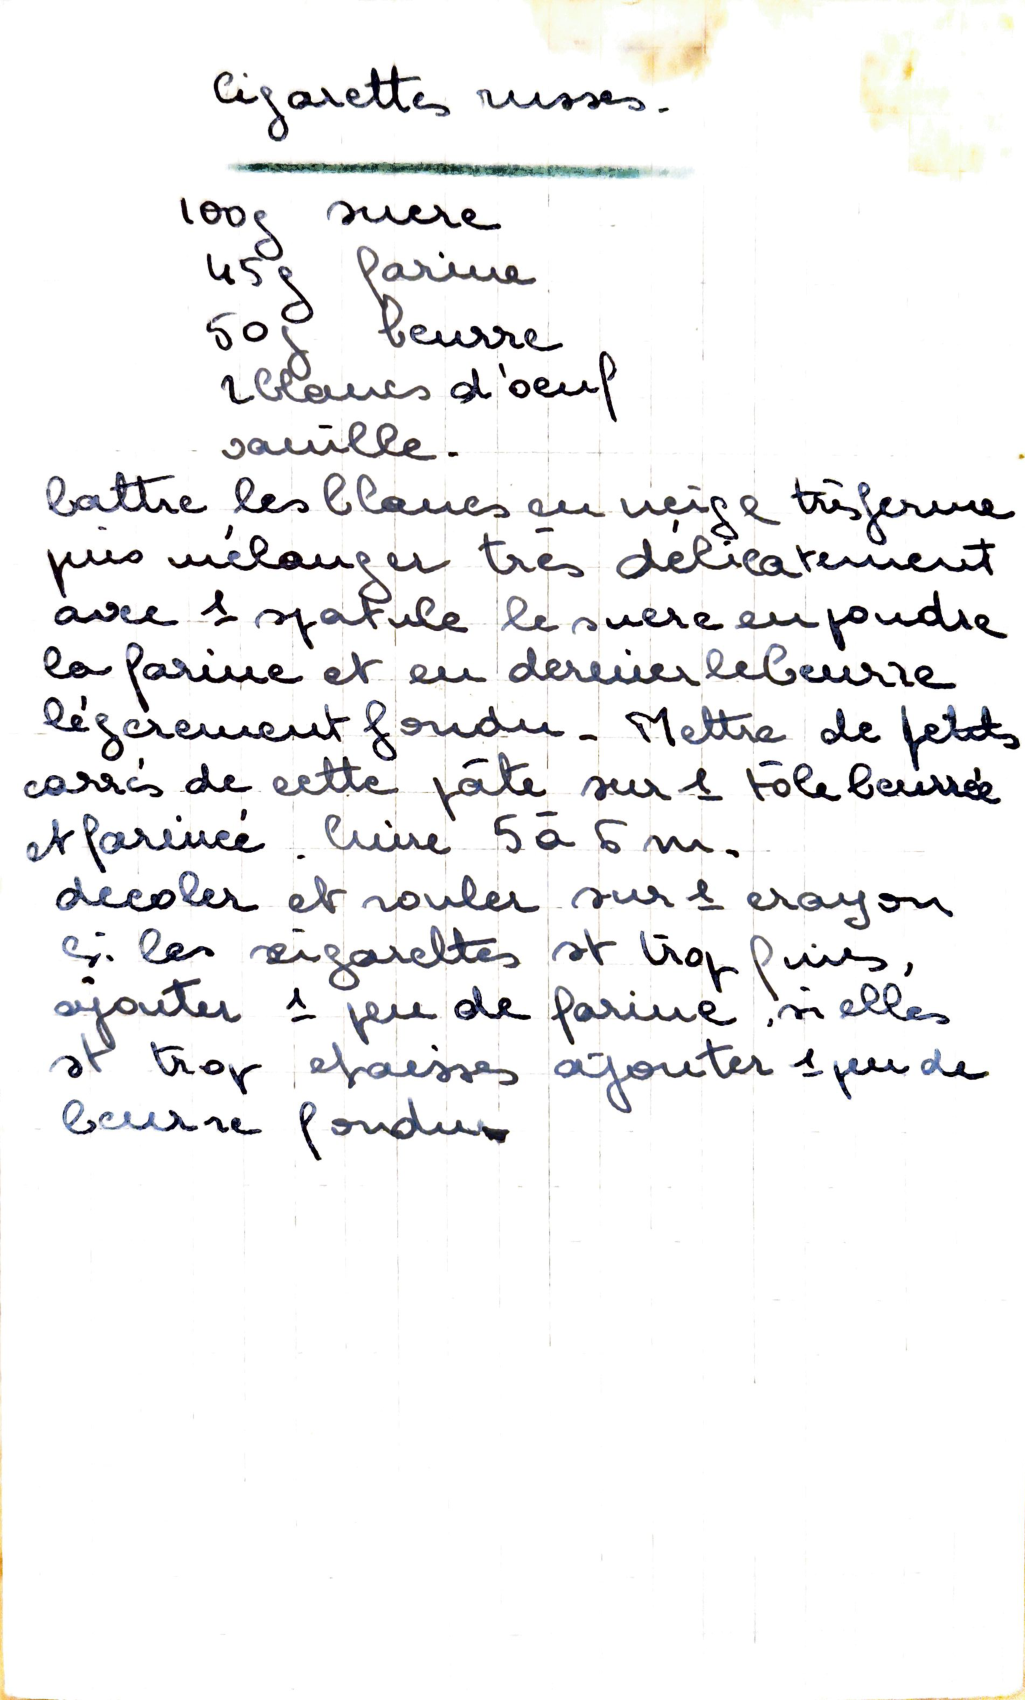 Cigarettes russes.
100g sucre
45g farine
50g beurre
2 blancs d'oeuf
vanille.
battre les blancs en neige très ferme
puis mélanger très délicatement
avec 1 spatule le sucre en poudre
la farine et en dernier le beurre
légerement fondu - Mettre de petits
carrés de cette pâte sur 1 tôle beurrée
et farinée. Cuire 5 à 6 m.
decoler et rouler sur 1 crayon
Si les cigarettes st trop fines,
ajouter 1 peu de farine, si elles
st trop epaisses ajouter 1 peu de
beurre fondu